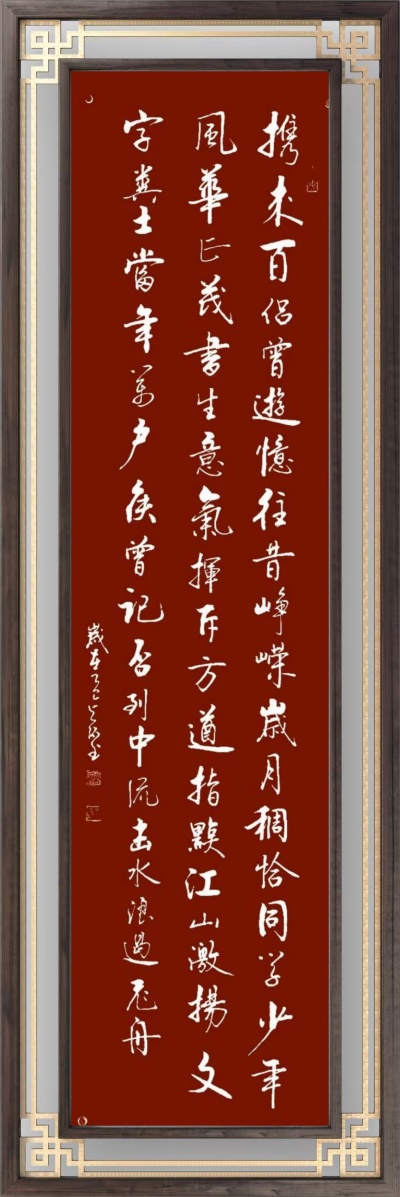 携来百侣曾遊憶往昔峥嶸歲月稠恰同学少年
風華正茂書生意氣揮斥方遒指點江山激揚文
字糞土當年萬户侯曾記否到中流击水浪遏飞舟
歲在乙巳